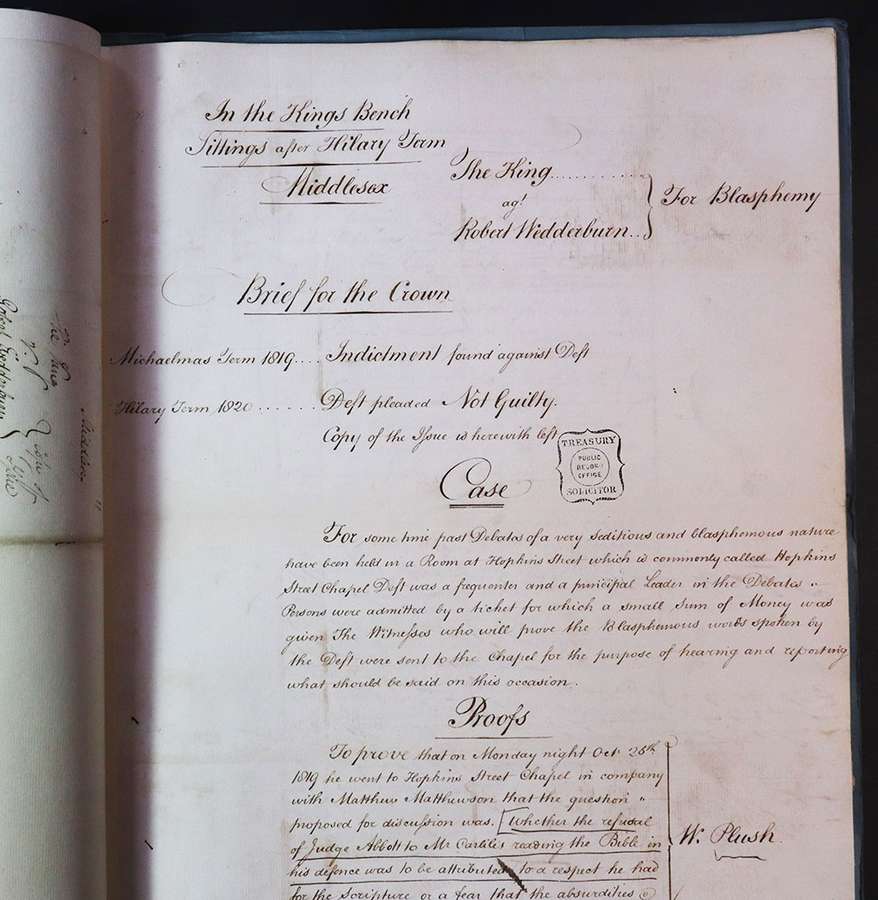 In the Kings Bench
Sittings after Hilary Term
Middlesex
The King
agt
Robert Wedderburn
For Blasphemy
Brief for the Crown
Michaelmas Term 1819.... Indictment found against Deft
Hilary Term 1820 ...... Deft pleaded Not Guilty.
Copy of the Issue is herewith left
TREASURY
PUBLIC
RECORD
OFFICE
SOLICITOR
Case
For some time past Debates of a very seditious and blasphemous nature
have been held in a Room at Hopkins Street which is commonly called Hopkins
Street Chapel Deft was a frequenter and a principal Leader in the Debates "
Persons were admitted by a ticket for which a small Sum of Money was
given The Witnesses who will prove the Blasphemous words spoken by
the Deft were sent to the Chapel for the purpose of hearing and reporting
what should be said on this occasion.
Proofs
To prove that on Monday night Oct 25th
1819 he went to Hopkins Street Chapel in company
with Matthew Matthewson that the question "
proposed for discussion was. Whether the refusal
of Judge Abbott to Mr Carliles reading the Bible in
his defence was to be attributed to a respect he had
for the Scripture or a fear that the absurdities
W. Plush.